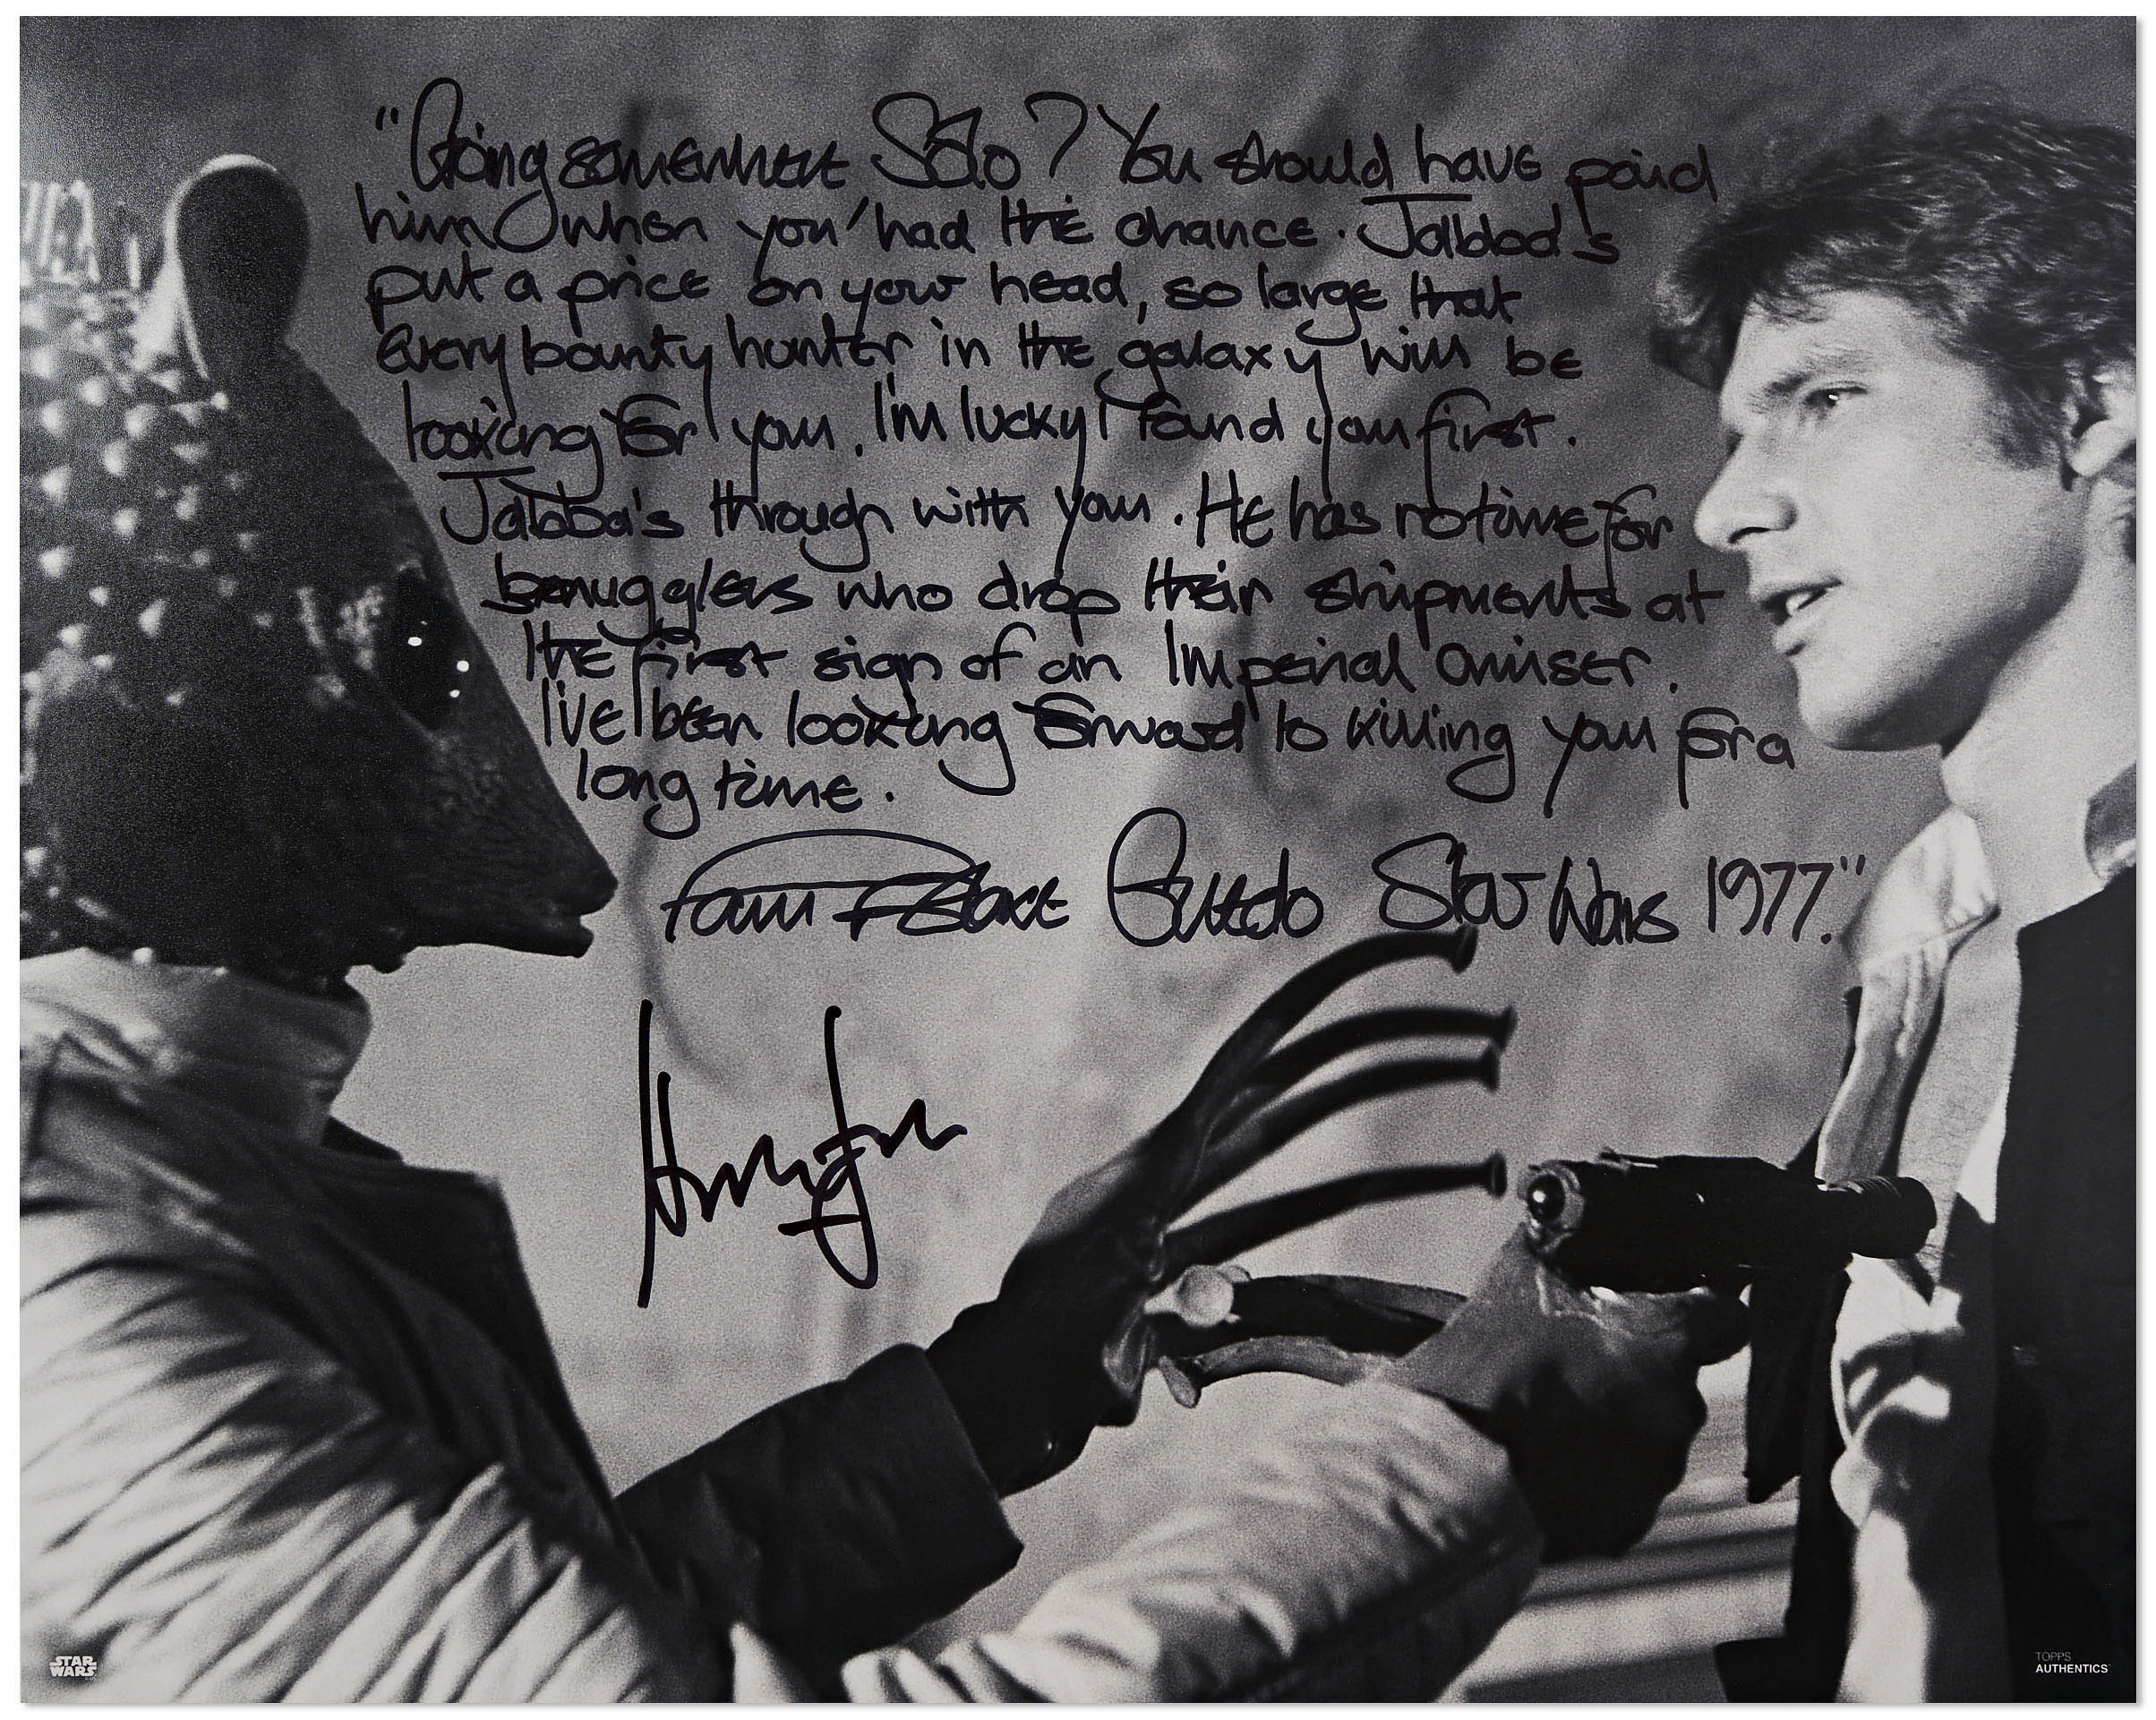 "Going somewhere Solo? You should have paid
him when you'had the chance. Jabba's
put a price on your head, so large that
every bounty hunter in the galaxy will be
looking for you. I'm lucky I found you first.
Jabba's through with you. He has no time for
smugglers who drop their shipments at
the first sign of an Imperial Cruiser.
I've been looking forward to killing you for a
long time.
Paul Blake Greedo Star Wars 1977."
Harrison Ford
STAR
WARS
TOPPS
AUTHENTICS